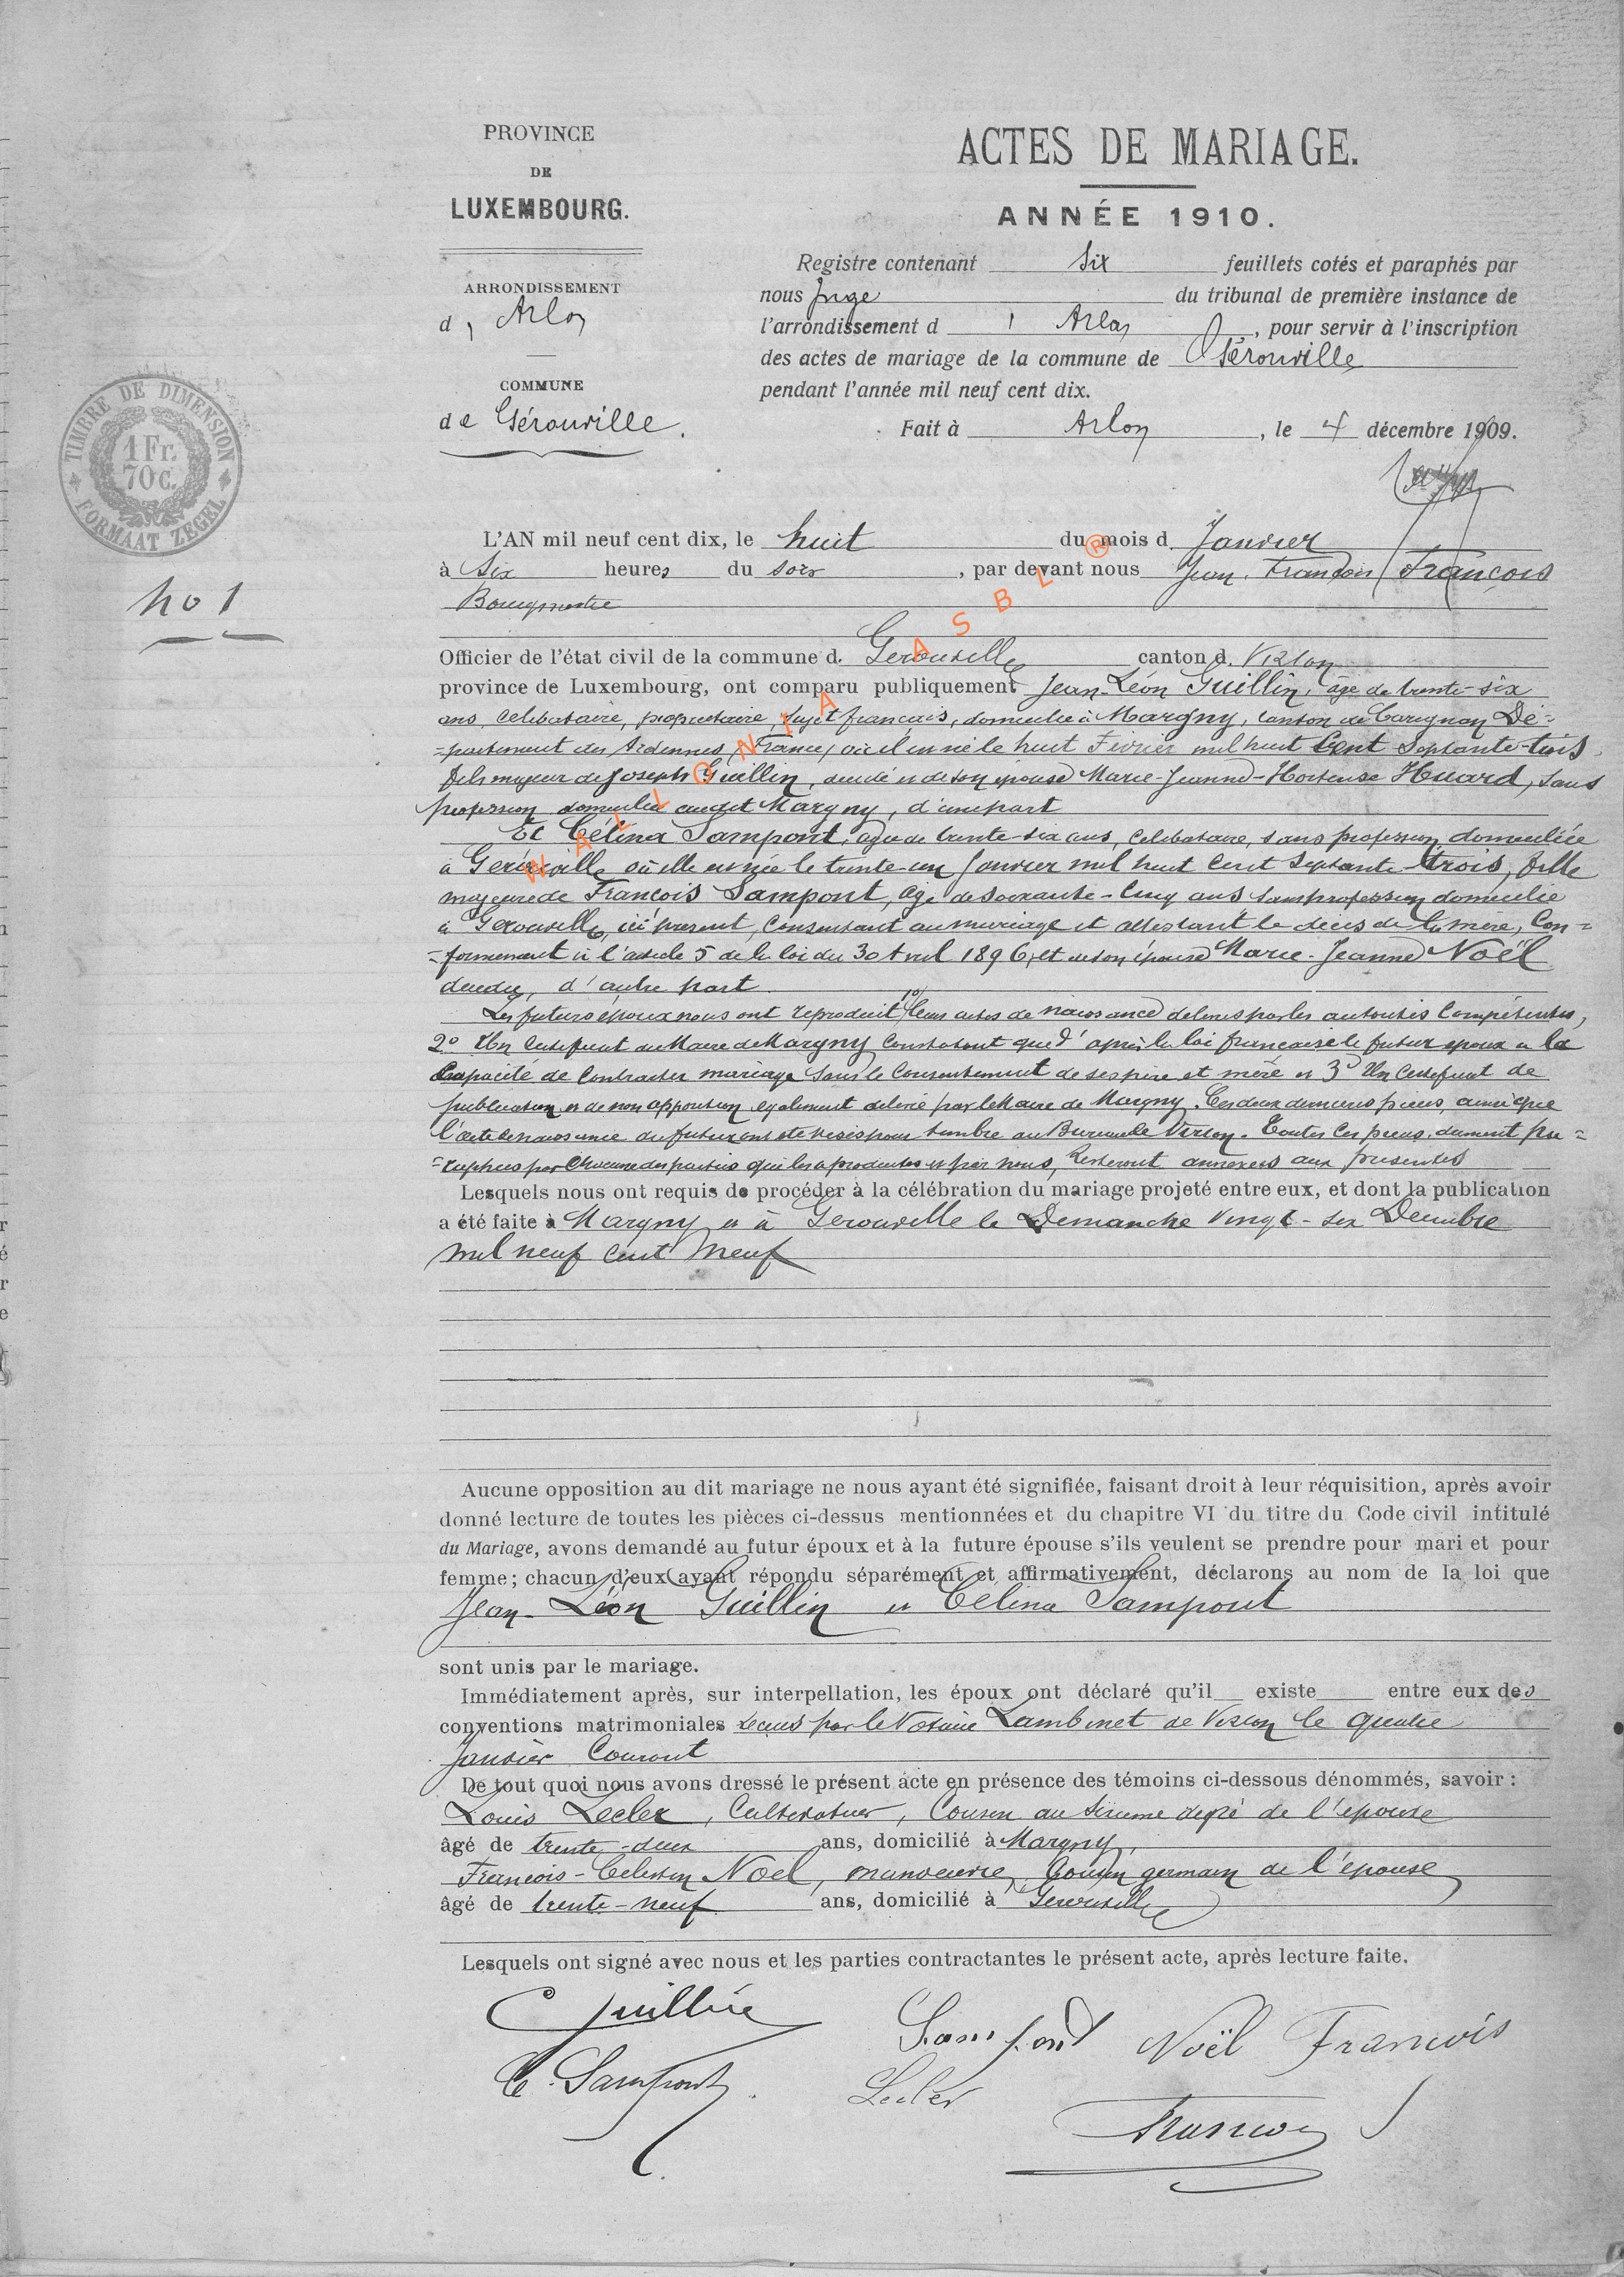 PROVINCE
DE
LUXEMBOURG.
ARRONDISSEMENT
d' Arlon
COMMUNE
de Gérouville.
TIMBRE DE DIMENSION
1 Fr.
70 c.
FORMAAT ZEGEL
No 1
ACTES DE MARIAGE.
ANNÉE 1910.
Registre contenant Six feuillets cotés et paraphés par
nous Juge du tribunal de première instance de
l'arrondissement d' Arlon, pour servir à l'inscription
des actes de mariage de la commune de Gérouville
pendant l'année mil neuf cent dix.
Fait à Arlon, le 4 décembre 1909.
L'AN mil neuf cent dix, le huit du mois d. Janvier
à Six heures du soir, par devant nous Jean François François
Bourgmestre
Officier de l'état civil de la commune d. Gerouville canton d. Virton
province de Luxembourg, ont comparu publiquement Jean-Léon Guillin, âgé de trente-six
ans, celibataire, proprietaire, sujet français, domicilié à Margny, canton de Carignan Dé=
=partement des Ardennes, France, où il est né le huit Février mil huit Cent Septante-trois
fils majeur de Joseph Guillin, decédé et de son épouse Marie-Jeanne-Hortense Huard, sans
profession domiciliée audit Margny, d'une part
Et Célina Sampont, agée de trente-six ans, celibataire, sans profession, domiciliée
à Gerouville où elle est née le trente-un Janvier mil huit cent Septante-trois, fille
majeure de François Sampont, agé de soixante-cinq ans sans profession domicilié
à Gerouville, ici présent, consentant au mariage et attestant le décès de la mère, Con=
=formément à l'article 5 de la loi du 30 Avril 1896, et de son épouse Marie-Jeanne Noël
decedée, d'autre part
Les futurs époux nous ont reproduit 1º leurs actes de naissance délivrés par les autorités compétentes,
2º Un Certificat du Maire de Margny constatant que d'après la loi française le futur époux a la
Capacité de Contracter mariage sans le Consentement de ses père et mère et 3º Un Certificat de
publication et de non opposition également delivré par le Maire de Margny. Ces deux dernieres pieces, ainsi que
l'acte de naissance du futur ont été visés pour timbre au Bureau de Virton. Toutes ces pieces, dument pa=
=raphées par Chacune des parties qui les a produites et par nous, resteront annexées aux présentes
Lesquels nous ont requis de procéder à la célébration du mariage projeté entre eux, et dont la publication
a été faite à Margny et à Gerouville le Dimanche Vingt-six Decembre
mil neuf cent neuf
Aucune opposition au dit mariage ne nous ayant été signifiée, faisant droit à leur réquisition, après avoir
donné lecture de toutes les pièces ci-dessus mentionnées et du chapitre VI du titre du Code civil intitulé
du Mariage, avons demandé au futur époux et à la future épouse s'ils veulent se prendre pour mari et pour
femme; chacun d'eux ayant répondu séparément et affirmativement, déclarons au nom de la loi que
Jean-Léon Guillin et Célina Sampont
sont unis par le mariage.
Immédiatement après, sur interpellation, les époux ont déclaré qu'il existe entre eux des
conventions matrimoniales recues par le Notaire Lambinet de Virton le quatre
Janvier Courant
De tout quoi nous avons dressé le présent acte en présence des témoins ci-dessous dénommés, savoir :
Louis Lecler, Cultivateur, Cousin au sixieme degré de l'epouse
âgé de trente-deux ans, domicilié à Margny,
François-Celestin Noel, manoeuvre, Cousin germain de l'epouse
âgé de trente-neuf ans, domicilié à Gerouville
Lesquels ont signé avec nous et les parties contractantes le présent acte, après lecture faite.
Guillin
Sampont Noël François
C. Sampont
Lecler
François
WALLONIA ASBL ®